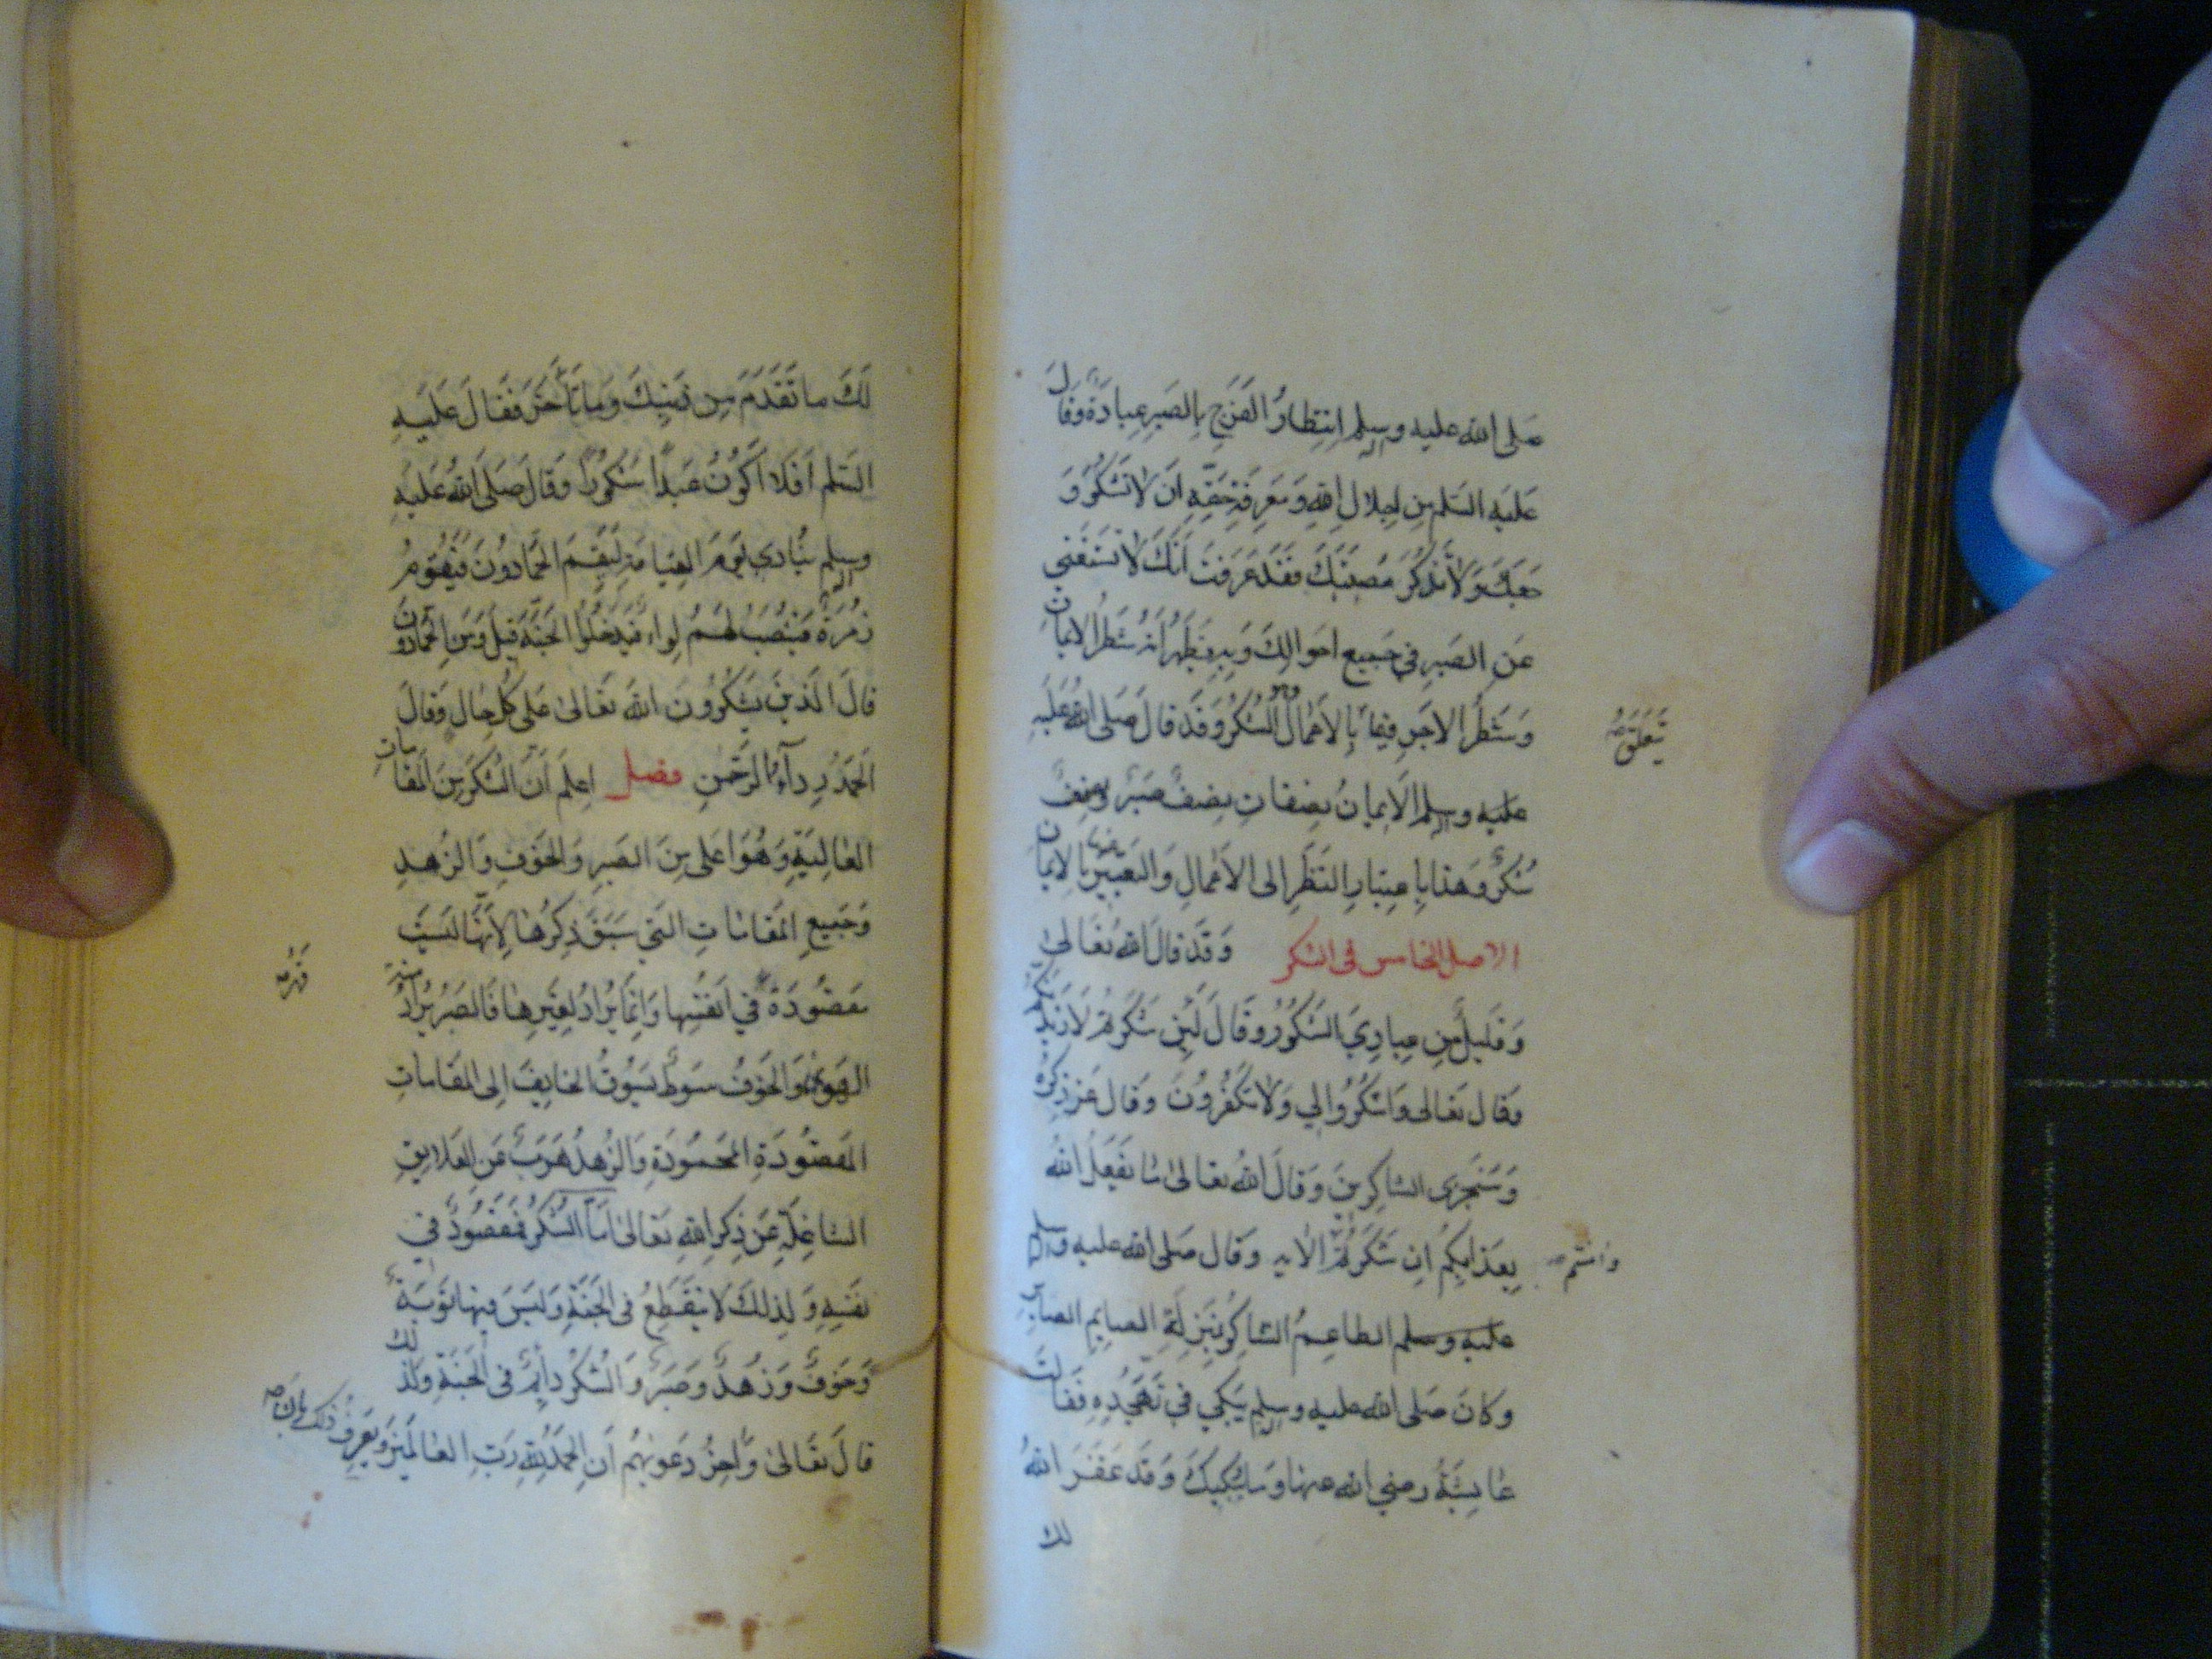 صلى الله عليه وسلم انتظار الفرج بالصبر عبادة وقال
عليه السلم من اجلال الله ومعرفة حقه ان لا تشكو و
جعك ولا تذكر مصيبتك فقد عرفت انك لا تستغنى
عن الصبر في جميع احوالك وبه يظهر انه شطر الايمان
وشطر الاجر فيما بالاعمال وهو الشكر وقد قال صلى الله عليه
يتعلق صح
عليه وسلم الايمان نصفان نصف صبر ونصف
شكر وهذا باعتبار النظر الى الاعمال والتعبير عنها بالايمان
الاصل الخامس فى الشكر وقد قال الله تعالى
وقليل من عبادي الشكور وقال لئن شكرتم لازيدنكم
وقال تعالى واشكروا لي ولا تكفرون وقال عز ذكره
وسنجزى الشاكرين وقال الله تعالى ما يفعل الله
بعذابكم ان شكرتم الايه وقال صلى الله عليه وسلم
وامنتم صح
عليه وسلم الطاعم الشاكر بمنزلة الصايم الصابر
وكان صلى الله عليه وسلم يبكي في تهجده فقالت
عايشة رضي الله عنها وما يبكيك وقد غفر الله
لك
لك ما تقدم من ذنبك وما تأخر فقال عليه
السلم افلا اكون عبدا شكورا وقال صلى الله عليه
وسلم ينادي يوم القيامة ليقم الحمادون فيقوم
زمرة فينصب لهم لواء فيدخلوا الجنة قيل ومن الحمادون
قال الذين يشكرون الله تعالى على كل حال وقال
الحمد رداء الرحمن فصل اعلم ان الشكر من المقامات
العالية وهو اعلى من الصبر والخوف والزهد
وجميع المقامات التي سبق ذكرها لانها ليست
مقصودة في انفسها وانما يراد لغيرها فالصبر يراد منه
قهر صح
الهوى والخوف سوط يسوق الخايف الى المقامات
المقصودة المحمودة والزهد هرب عن العلايق
الشاغلة عن ذكر الله تعالى اما الشكر فمقصود في
نفسه ولذلك لا ينقطع فى الجنة وليس فيها توبة
وخوف وزهد وصبر والشكر دايم فى الجنة ولذلك
قال تعالى وآخر دعويهم ان الحمد لله رب العالمين ويعرف ذلك بان صح